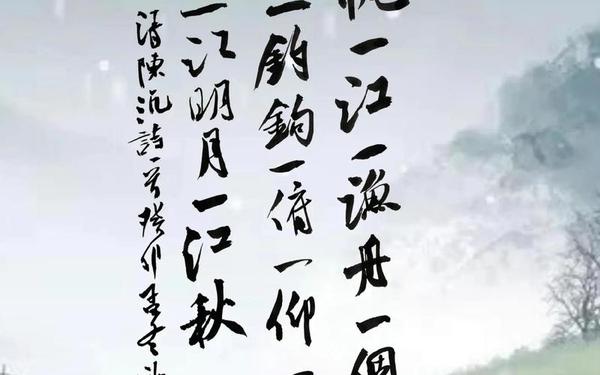 帆一江一漁舟一個
一釣鈎一俯一仰一
一江明月一江秋
清陳沆詩一首癸卯